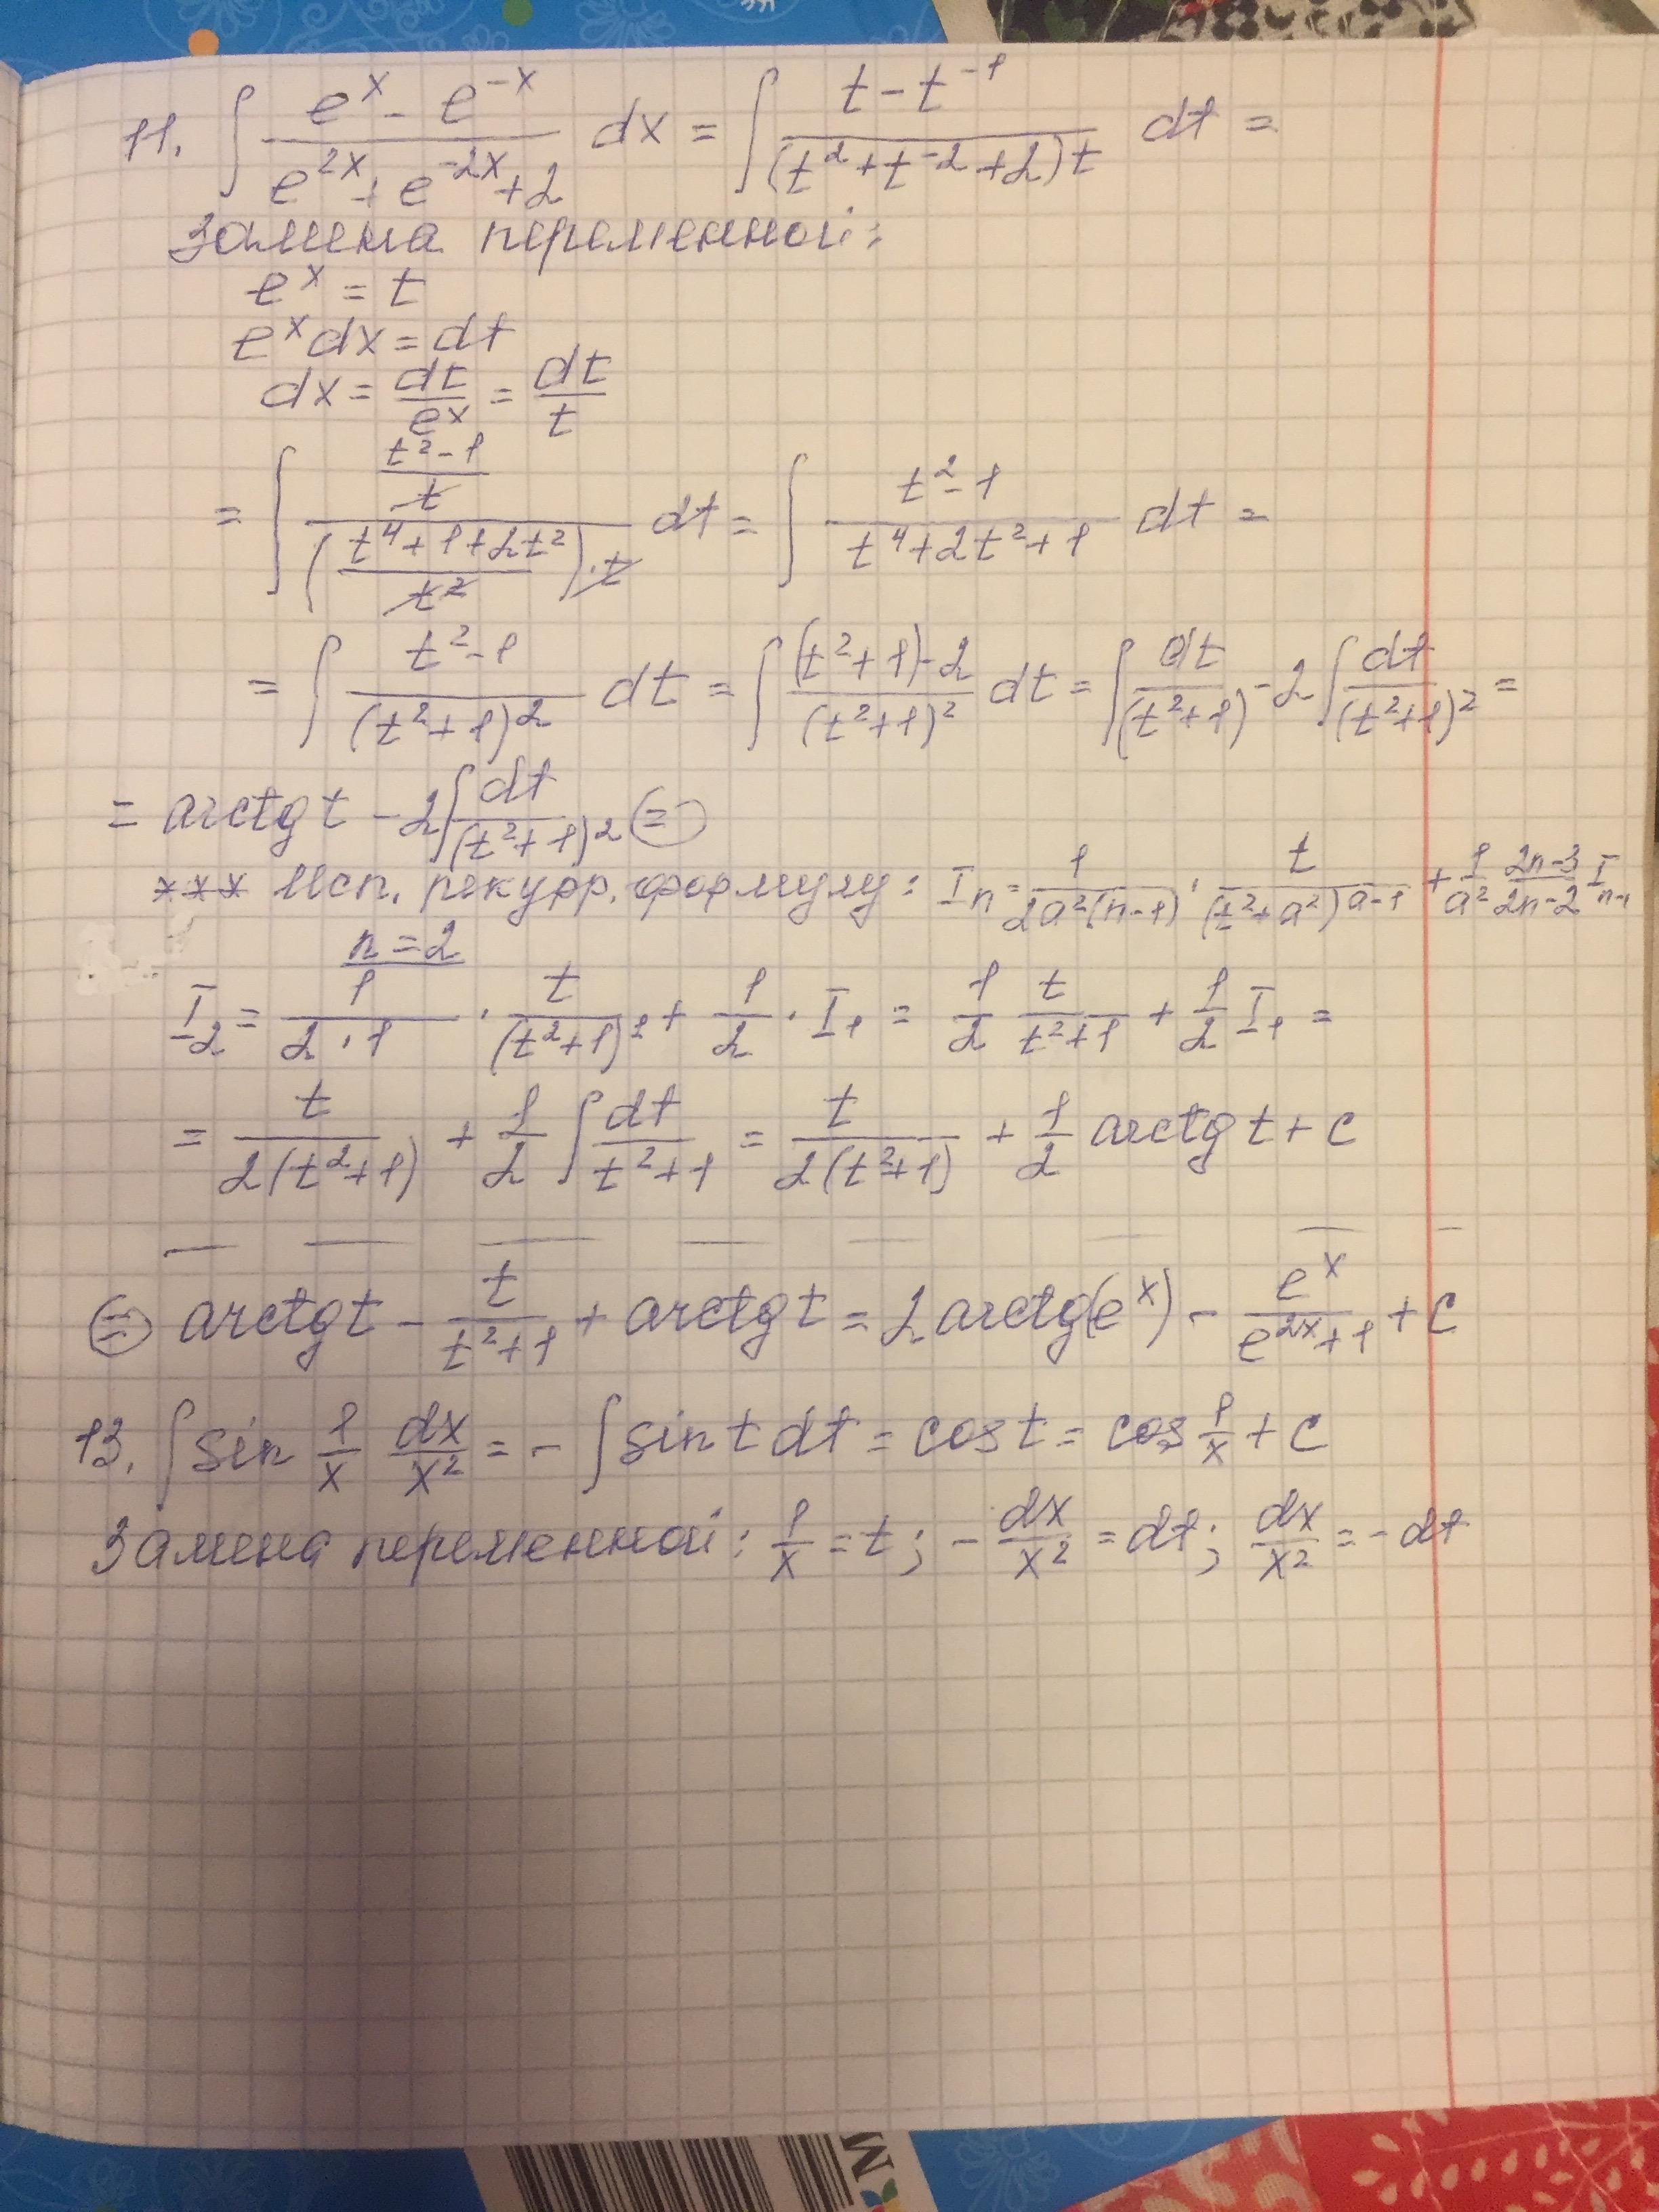 11. ∫ (e^x - e^{-x})/(e^{2x} + e^{-2x} + 2) dx = ∫ (t - t^{-1})/((t^2 + t^{-2} + 2)t) dt =
Замена переменной:
e^x = t
e^x dx = dt
dx = dt/e^x = dt/t
= ∫ ((t^2 - 1)/t)/(((t^4 + 1 + 2t^2)/t^2)·t) dt = ∫ (t^2 - 1)/(t^4 + 2t^2 + 1) dt =
= ∫ (t^2 - 1)/(t^2 + 1)^2 dt = ∫ ((t^2 + 1) - 2)/(t^2 + 1)^2 dt = ∫ dt/(t^2 + 1) - 2∫ dt/(t^2 + 1)^2 =
= arctg t - 2∫ dt/(t^2 + 1)^2 (=)
*** Исп. рекурр. формулу: I_n = 1/(2a^2(n-1)) · t/(t^2 + a^2)^{a-1} + 1/a^2 (2n-3)/(2n-2) I_{n-1}
n = 2
I_2 = 1/(2·1) · t/(t^2 + 1)^1 + 1/2 · I_1 = 1/2 t/(t^2 + 1) + 1/2 I_1 =
= t/(2(t^2 + 1)) + 1/2 ∫ dt/(t^2 + 1) = t/(2(t^2 + 1)) + 1/2 arctg t + c
(=) arctg t - t/(t^2 + 1) + arctg t = 2 arctg(e^x) - e^x/(e^{2x} + 1) + c
13. ∫ sin 1/x dx/x^2 = - ∫ sin t dt = cos t = cos 1/x + c
Замена переменной: 1/x = t; - dx/x^2 = dt; dx/x^2 = - dt
M